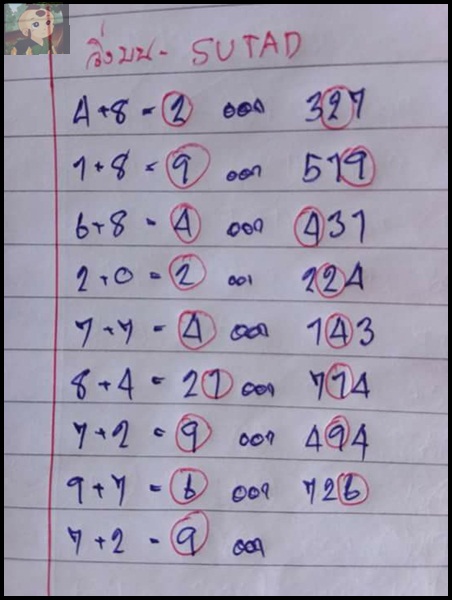 วิ่งบน - SUTAD
4+8 = 2 ออก 327
1+8 = 9 ออก 519
6+8 = 4 ออก 431
2+0 = 2 ออก 224
7+7 = 4 ออก 143
8+4 = 21 ออก 714
7+2 = 9 ออก 494
9+7 = 6 ออก 726
7+2 = 9 ออก